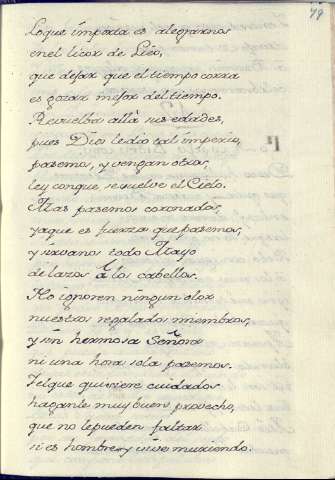 78
Loque importa es alegrarnos
enel licor de Lieo,
que dejar que el tiempo corra
es gozar mejor del tiempo.
Revuelba allà sus edades,
pues Dios ledio tal imperio,
pasemos, y vengan otros,
ley conque, se vuelve el Cielo.
Mas pasemos coronados,
yaque es fuerza que pasemos,
y sirvanos todo Mayo
de lazos à los cabellos.
No ignoren ningun olor
nuestros regalados miembros,
y sin hermosa Señora
ni una hora sola pasemos.
Yelque quisiere cuidados
haganle muy buen provecho,
que no lepueden faltar
si es hombre, y vive muriendo.